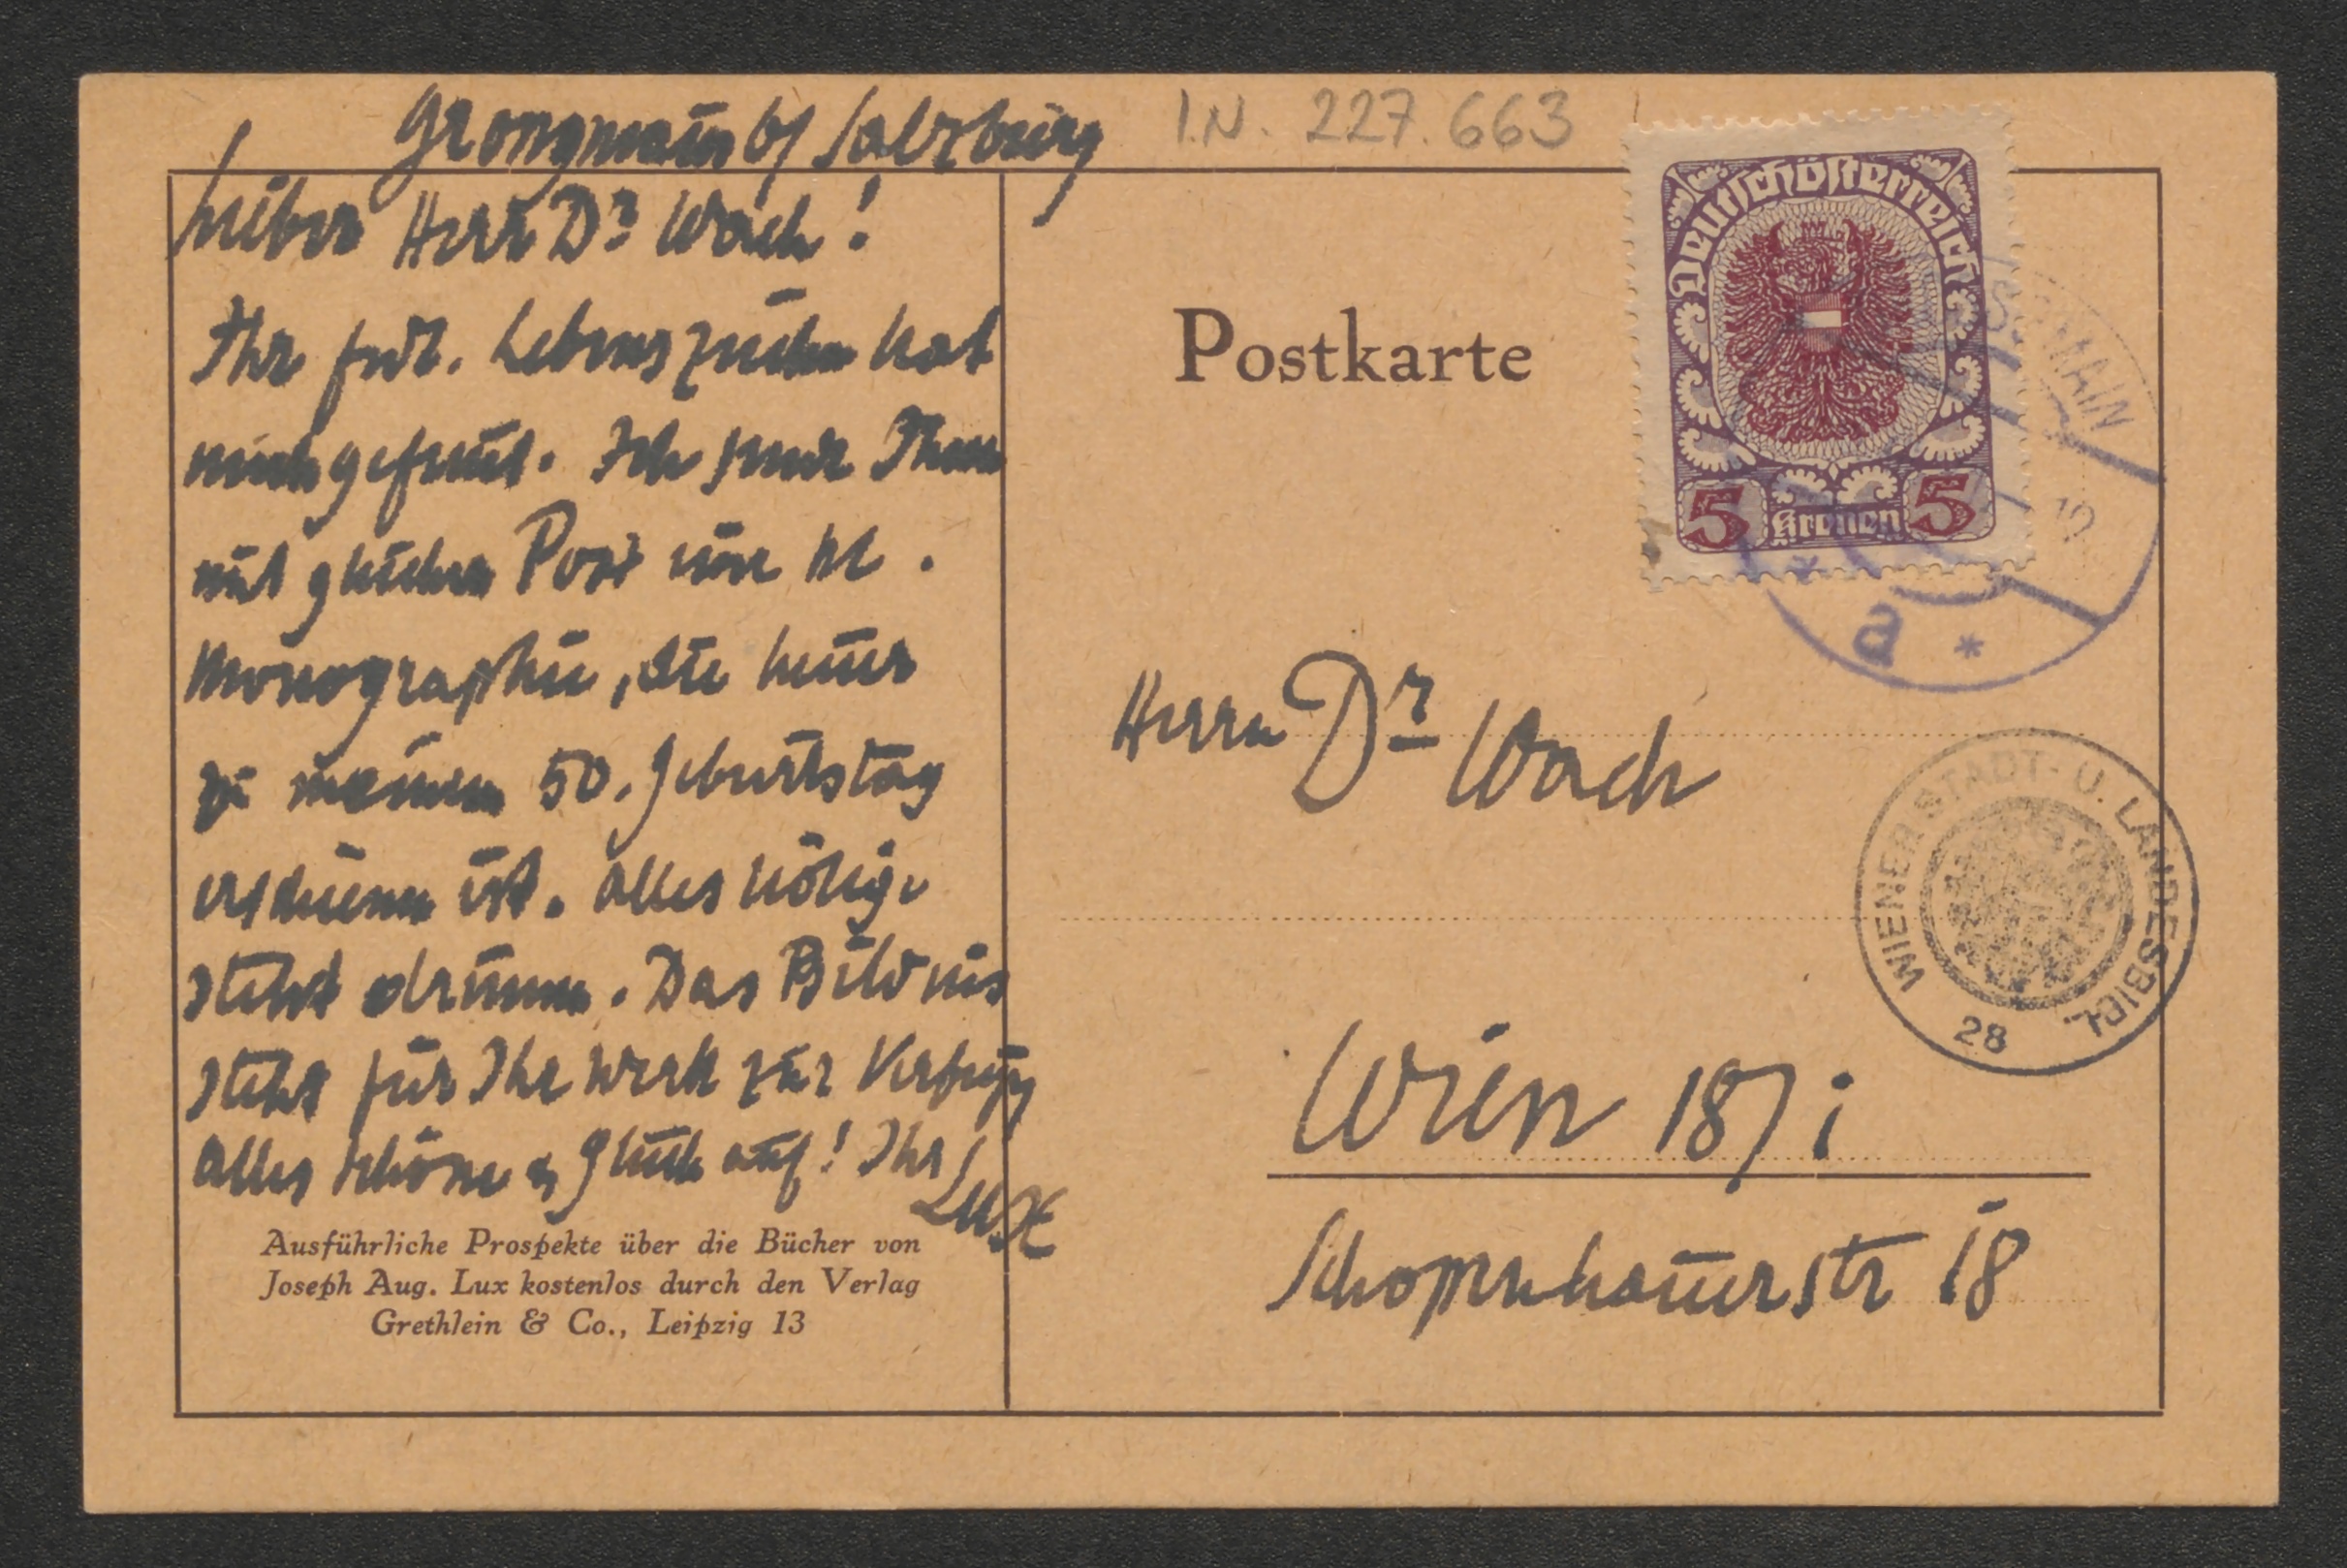 Grossgmain b/ Salzburg
I.N. 227.663
Lieber Herr Dr Wach!
Ihr frdl. Lebenszeichen hat
mich gefreut. Ich sende Ihnen
mit gleicher Post eine kl.
Monographie, die heuer
zu meinem 50. Geburtstag
erschienen ist. Alles nötige
steht drinnen. Das Bildnis
steht für Ihr Werk zur Verfügg
Alles Schöne & Glück auf! Ihr
Lux
Ausführliche Prospekte über die Bücher von
Joseph Aug. Lux kostenlos durch den Verlag
Grethlein & Co., Leipzig 13
Postkarte
Deutschösterreich
5 Kronen 5
MAIN
a *
Herrn Dr Wach
WIENER STADT- U. LANDESBIBL.
28
Wien 18/i
Schopenhauerstr 18